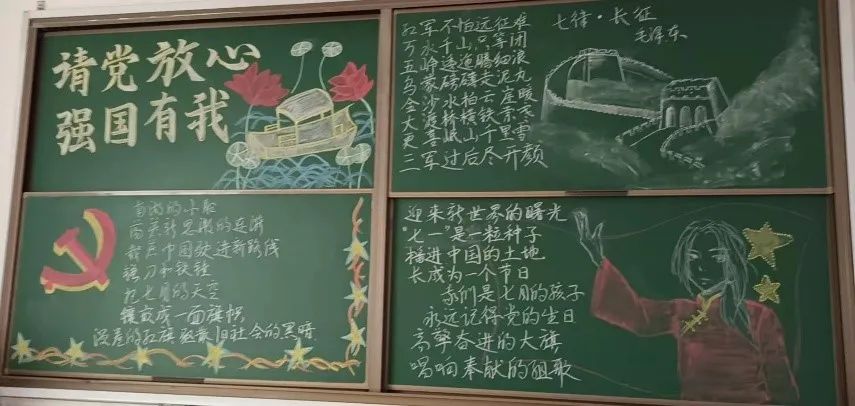 请党放心
强国有我
七律·长征
毛泽东
红军不怕远征难
万水千山只等闲
五岭逶迤腾细浪
乌蒙磅礴走泥丸
金沙水拍云崖暖
大渡桥横铁索寒
更喜岷山千里雪
三军过后尽开颜
南湖的小船
新思潮的
中国驶进新路线
镰刀和铁锤
把七月的天空
镶嵌成一面旗帜
漫卷的红旗驱散旧社会的黑暗
迎来新世界的曙光
"七一"是一粒种子
播进中国的土地
长成为一个节日
我们是七月的孩子
永远记得党的生日
高擎奋进的大旗
唱响奉献的组歌